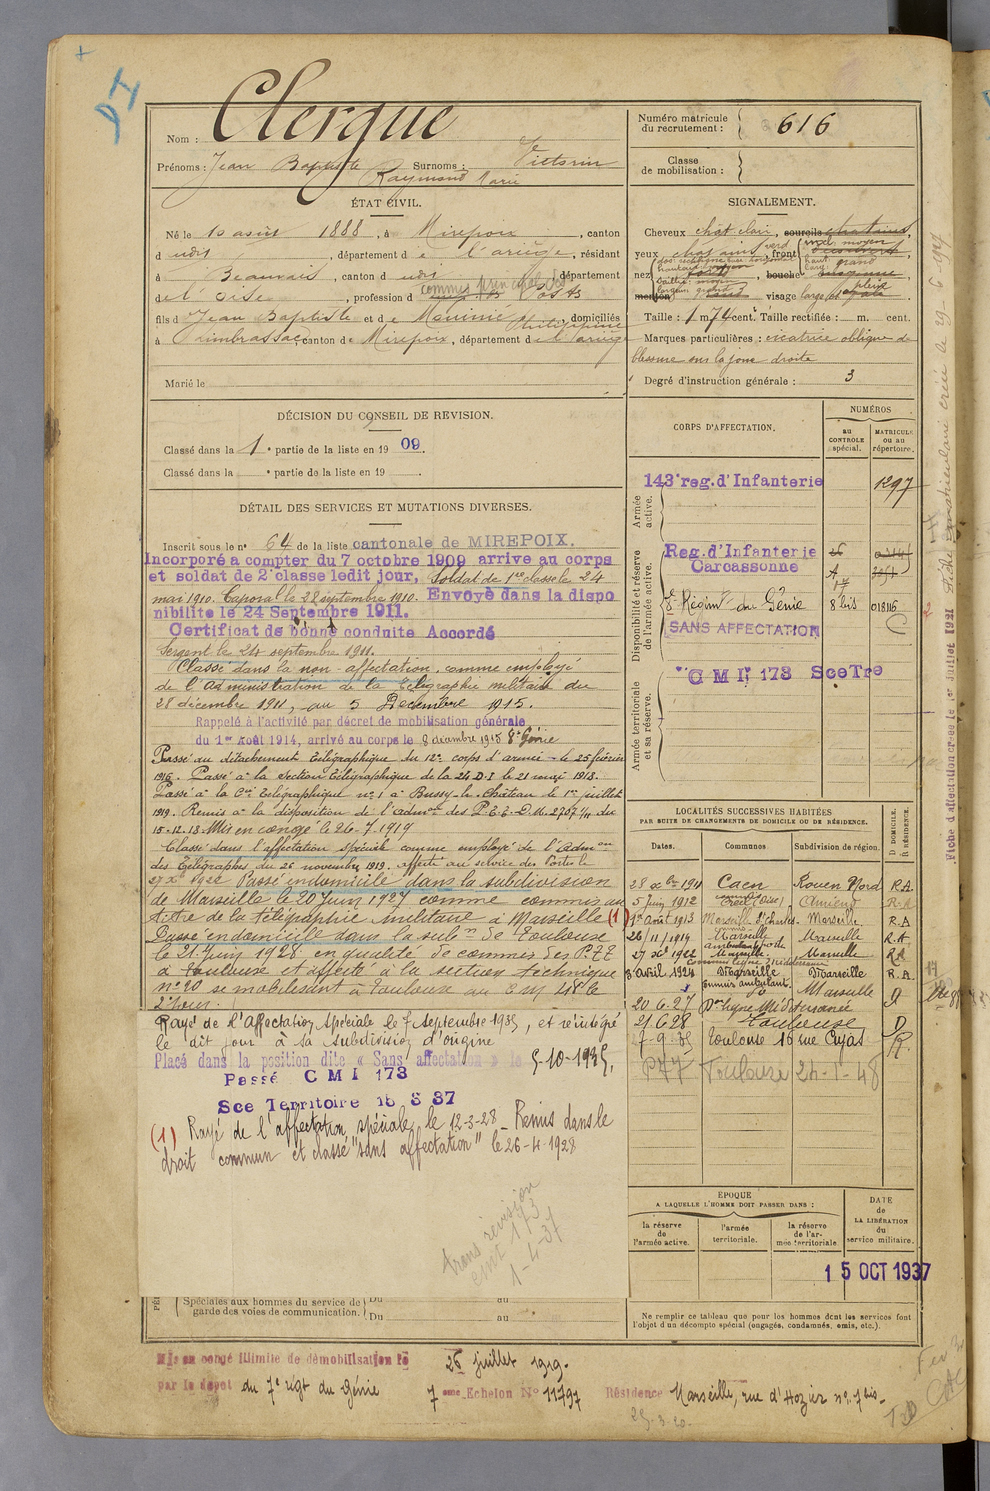 +
DI
Nom : Clergue
Prénoms : Jean Baptiste Surnoms : Victorin
Raymond Marie
ÉTAT CIVIL.
Né le 10 août 1888, à Mirepoix, canton
d udit, département de l'ariège, résidant
à Beauvais, canton d udit, département
de l'Oise, profession d commis principal des Postes
fils d Jean Baptiste et de Mounié Philippine, domiciliés
à Rimbrassac, canton de Mirepoix, département de l'ariège
Marié le
DÉCISION DU CONSEIL DE REVISION.
Classé dans la 1e partie de la liste en 1909.
Classé dans la e partie de la liste en 19
DÉTAIL DES SERVICES ET MUTATIONS DIVERSES.
Inscrit sous le n° 64 de la liste cantonale de MIREPOIX.
Incorporé a compter du 7 octobre 1909 arrive au corps
et soldat de 2e classe ledit jour, Soldat de 1re classe le 24
mai 1910. Caporal le 28 septembre 1910. Envoyé dans la dispo
nibilite le 24 Septembre 1911.
Certificat de bonne conduite Accordé
Sergent le 24 septembre 1911.
Classé dans la non-affectation, comme employé
de l'administration de la télégraphie militaire du
28 décembre 1911, au 5 Décembre 1915.
Rappelé à l'activité par décret de mobilisation générale
du 1er Août 1914, arrivé au corps le 8 décembre 1915 8e Génie
Passé au détachement télégraphique du 12e corps d'armée le 25 février
1916. Passé à la section télégraphique de la 24 D.I le 21 mai 1918.
Passé à la Cie télégraphique n° 1 à Bussy-le-Château le 1er juillet
1919. Remis à la disposition de l'admon des P.T.T. D.M. 2707 1/11 du
15.12.18. Mis en congé le 26-7-1919
Classé dans l'affectation spéciale comme employé de l'admon
des télégraphes du 26 novembre 1919. affecté au service des Postes le
27 Xbre 1922 Passé en domicile dans la subdivision
de Marseille le 20 Juin 1927 comme commis au
titre de la télégraphie militaire à Marseille (1)
Passé en domicile dans la subon de Toulouse
le 21 Juin 1928 en qualité de commis des P.T.T
à Toulouse et affecté à la section technique
n° 20 se mobilisant à Toulouse au C M 48 le
2e jour.
Rayé de l'Affectation Spéciale le 7 Septembre 1935, et réintégré
le dit jour à sa Subdivision d'origine
Placé dans la position dite « Sans affectation » le 5-10-1935.
Passé C M I 173
Sce Territoire 15 S 37
(1) Rayé de l'affectation spéciale le 12-3-28 _ Remis dans le
droit commun et classé "sans affectation" le 26-4-1928
trans révision
cmi 173
1-4-37
Spéciales aux hommes du service de
garde des voies de communication.
Du au
Du au
Numéro matricule
du recrutement : 616
Classe
de mobilisation :
SIGNALEMENT.
Cheveux chat clair, sourcils chatains,
yeux chat ains verd, front
nez, bouche
menton, visage large et plein
Taille : 1 m 74 cent. Taille rectifiée : m. cent.
Marques particulières : cicatrice oblique de
blessure sur la joue droite
Degré d'instruction générale : 3
CORPS D'AFFECTATION.
NUMÉROS
AU
CONTROLE
spécial.
MATRICULE
ou au
répertoire.
Armée
active.
143e reg. d'Infanterie 1297
Disponibilité et réserve
de l'armée active.
Reg. d'Infanterie
Carcassonne
8e Régimt du Génie 8 bis 018116
SANS AFFECTATION
Armée territoriale
et sa réserve.
C M I 173 Sce Tre
LOCALITÉS SUCCESSIVES HABITÉES
PAR SUITE DE CHANGEMENTS DE DOMICILE OU DE RÉSIDENCE.
Dates. Communes. Subdivision de région.
D. DOMICILE.
R. RÉSIDENCE.
28 Xbre 1911 Caen Rouen Nord R.A.
5 juin 1912 Creil (Oise) Amiens R.A
1er Août 1913 Marseille St Charles Marseille R.A
26/11/1919 Marseille Marseille R.A
ambulant poste
27 Xbre 1922 Marseille Marseille RA
8 avril 1924 Marseille Marseille R.A.
commis ambulant
20.6.27 Don ligne Méditerranée Marseille D
21.6.28 Toulouse D
7-9-35 Toulouse 16 rue Cujas R.
P77 Toulouse 24-1-48
ÉPOQUE
A LAQUELLE L'HOMME DOIT PASSER DANS :
la réserve
de l'armée active.
l'armée
territoriale.
la réserve
de l'ar-
mée territoriale.
DATE
de
LA LIBÉRATION
du
service militaire.
15 OCT 1937
Ne remplir ce tableau que pour les hommes dont les services font
l'objet d'un décompte spécial (engagés, condamnés, omis, etc.).
Mis en congé illimité de démobilisation le 26 juillet 1919.
par le dépot du 7e régt du Génie 7eme Echelon N° 11797 Résidence Marseille, rue d'Hozier n° 7 bis.
25-3-20.
Fiche d'affectation créée le 1er Juillet 1921
Fiche matriculaire créée le 29 6